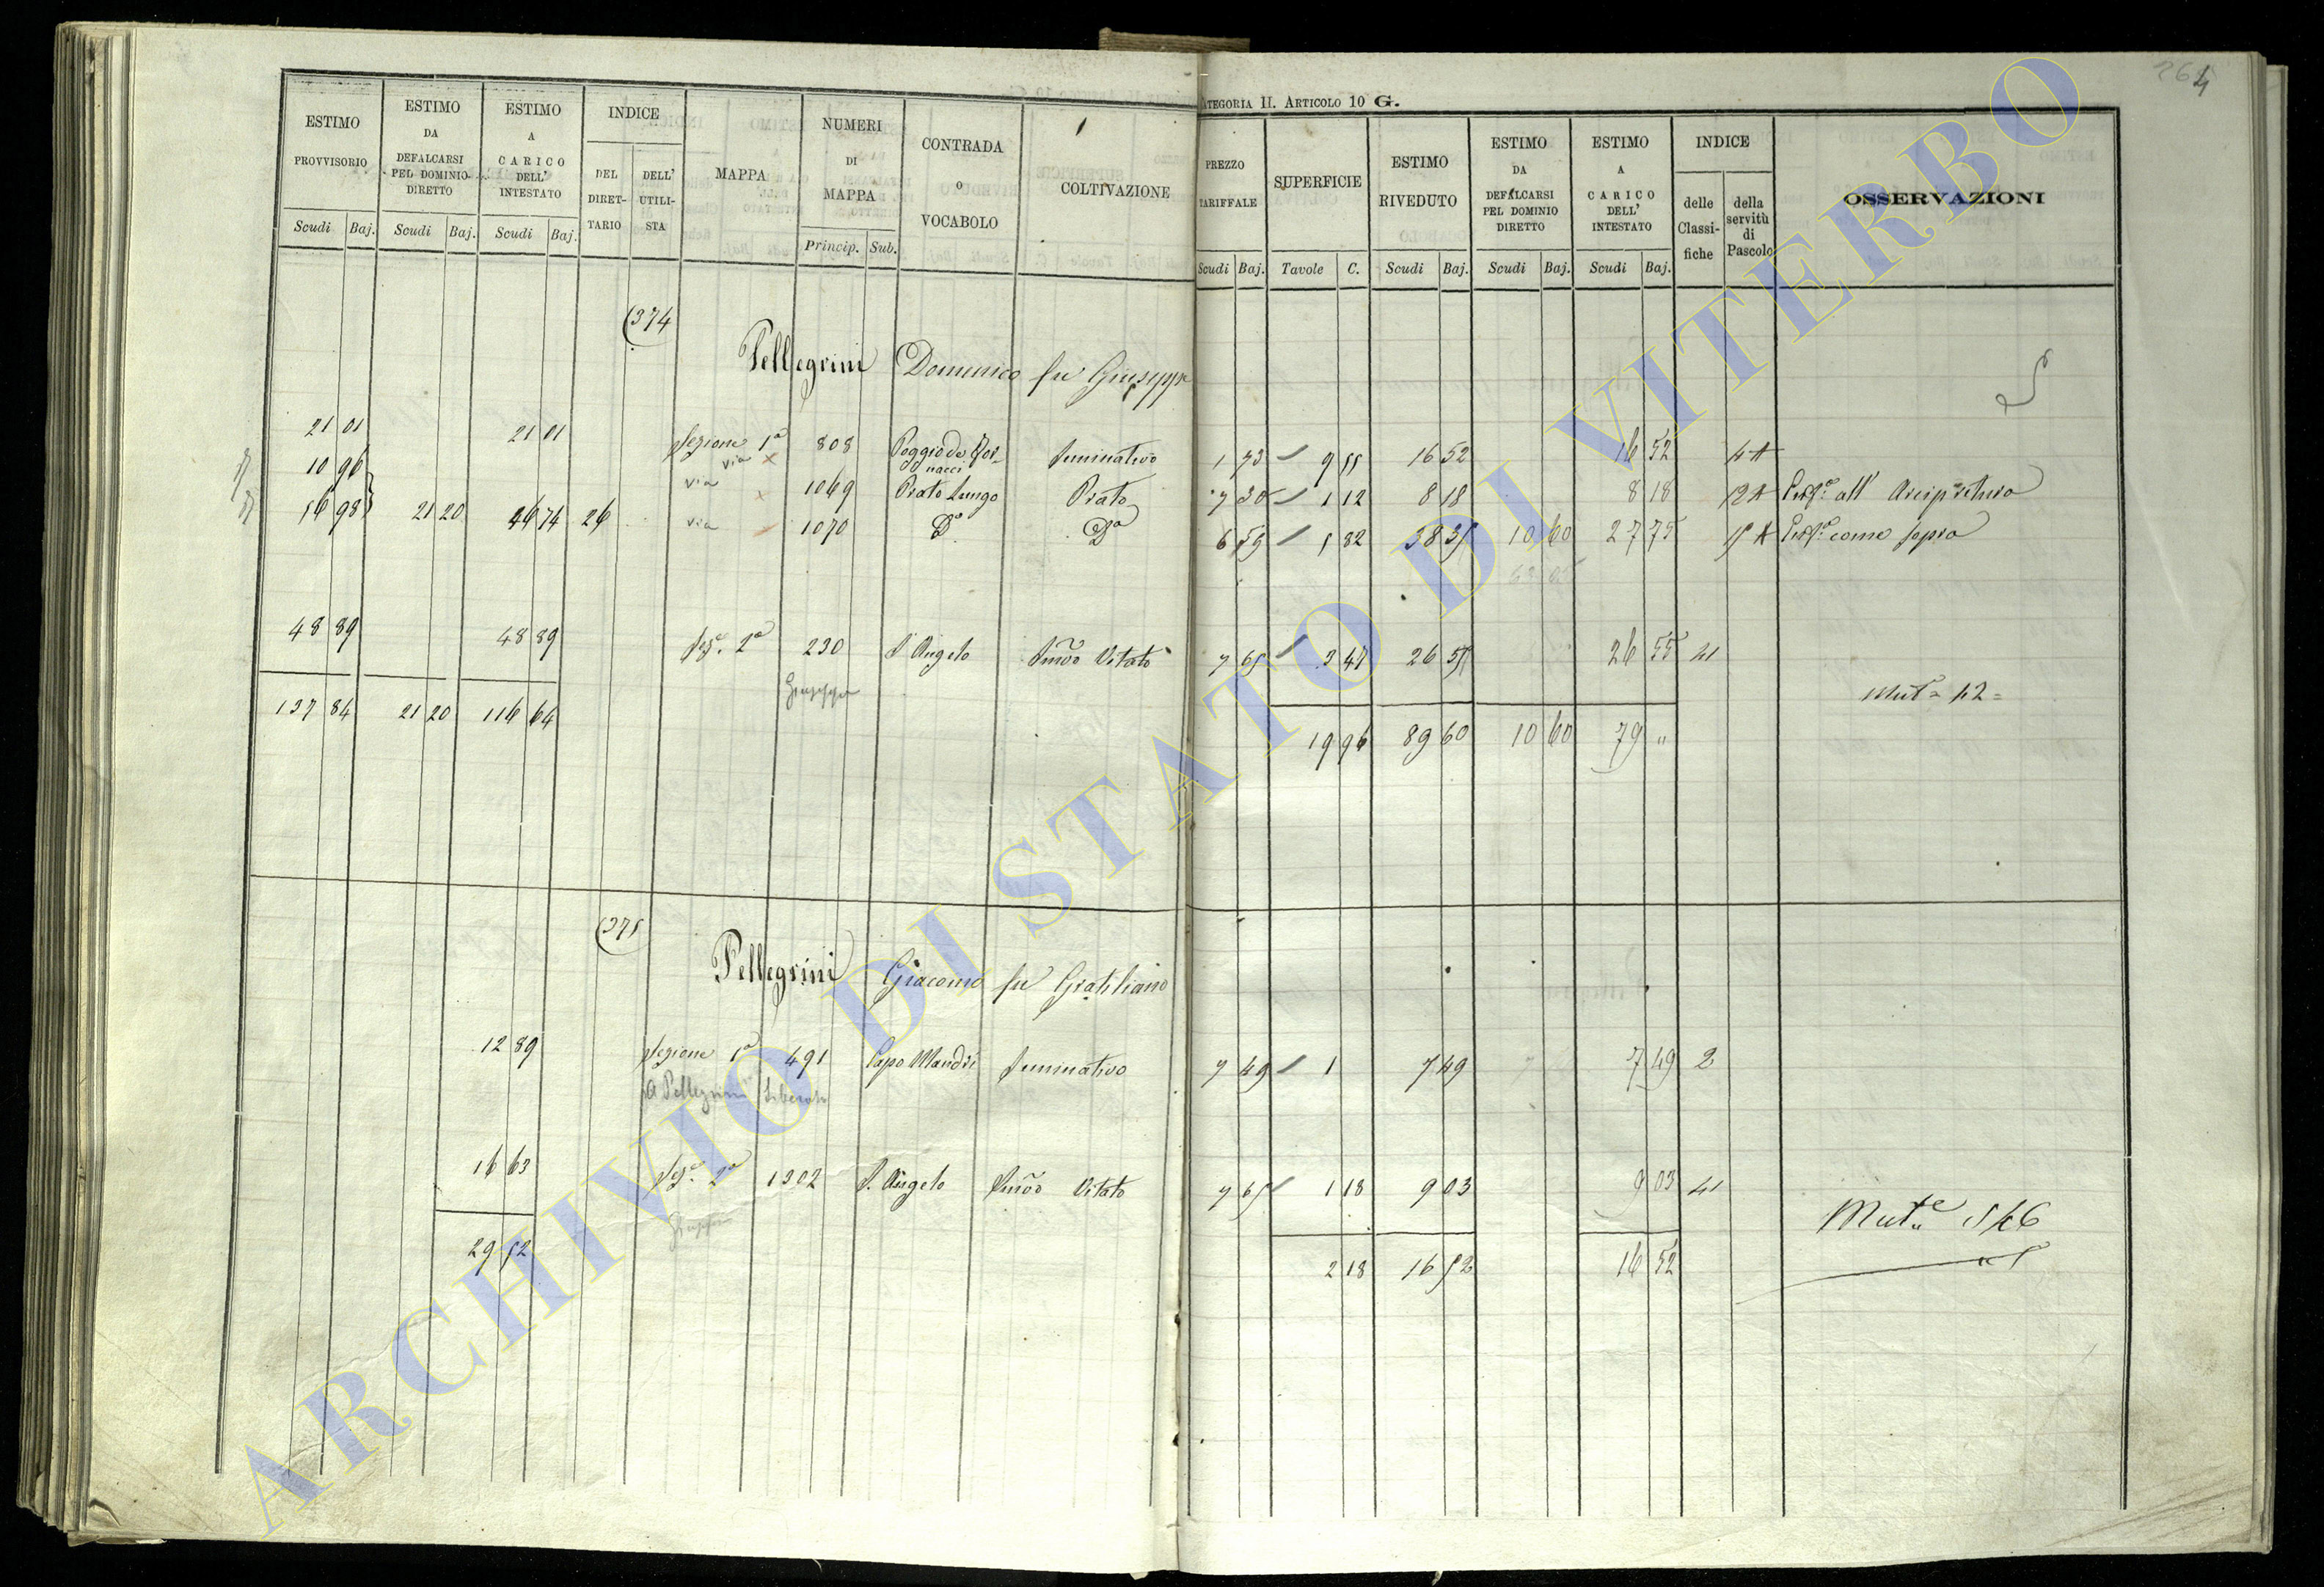 264
CATEGORIA II. ARTICOLO 10 G.
ESTIMO PROVVISORIO
ESTIMO DA DEFALCARSI PEL DOMINIO DIRETTO
ESTIMO A CARICO DELL' INTESTATO
INDICE
DEL DIRETTARIO
DELL' UTILISTA
MAPPA
NUMERI DI MAPPA
CONTRADA o VOCABOLO
COLTIVAZIONE
PREZZO TARIFFALE
SUPERFICIE
ESTIMO RIVEDUTO
ESTIMO DA DEFALCARSI PEL DOMINIO DIRETTO
ESTIMO A CARICO DELL' INTESTATO
INDICE
delle Classifiche
della servitù di Pascolo
OSSERVAZIONI
Scudi Baj. Scudi Baj. Scudi Baj. Princip. Sub. Scudi Baj. Tavole C. Scudi Baj. Scudi Baj. Scudi Baj.
(374
Pellegrini Domenico fu Giuseppe
21 01 21 01 Sezione 1a 808 Seminativo 1 73 9 55 16 52 16 52 4A
via
10 96 via 1069 Prato lungo Prato 7 30 1 12 8 18 8 18 12A all' Arcipretura
56 98 21 20 46 74 26 via 1070 Do Do 6 59 5 82 38 35 10 60 27 75 15A come sopra
48 89 48 89 Sez. 2a 230 S Angelo Semo Vitato 7 65 3 47 26 55 26 55 41
Giuseppe
Mut. 42
137 84 21 20 116 64 19 96 89 60 10 60 79 "
(375
Pellegrini Giacomo fu Gratiliano
12 89 Sezione 1a 491 Capo Mandri Seminativo 7 49 1 7 49 7 49 2
A Pellegrini Liberato
16 63 Sez. 2a 1302 S. Angelo Semo Vitato 7 65 1 18 9 03 9 03 41
Giuseppe
Mute 546
29 52 2 18 16 52 16 52
ARCHIVIO DI STATO DI VITERBO